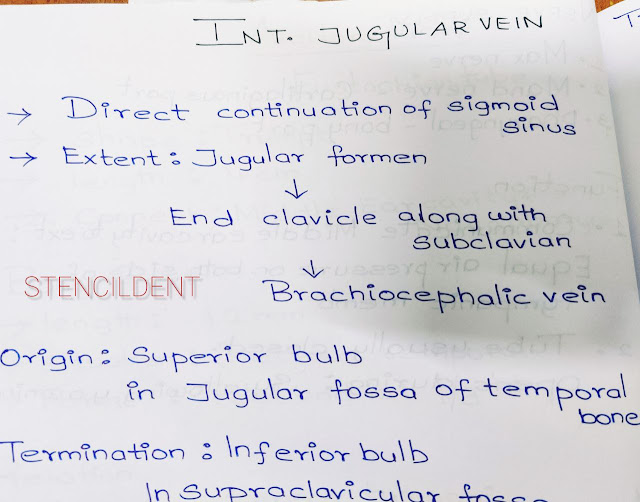 INT. JUGULAR VEIN
→ Direct continuation of sigmoid
sinus
→ Extent: Jugular formen
↓
End clavicle along with
subclavian
↓
STENCILDENT
Brachiocephalic vein
Origin: Superior bulb
in Jugular fossa of temporal
bone
Termination: Inferior bulb
In supraclavicular fossa